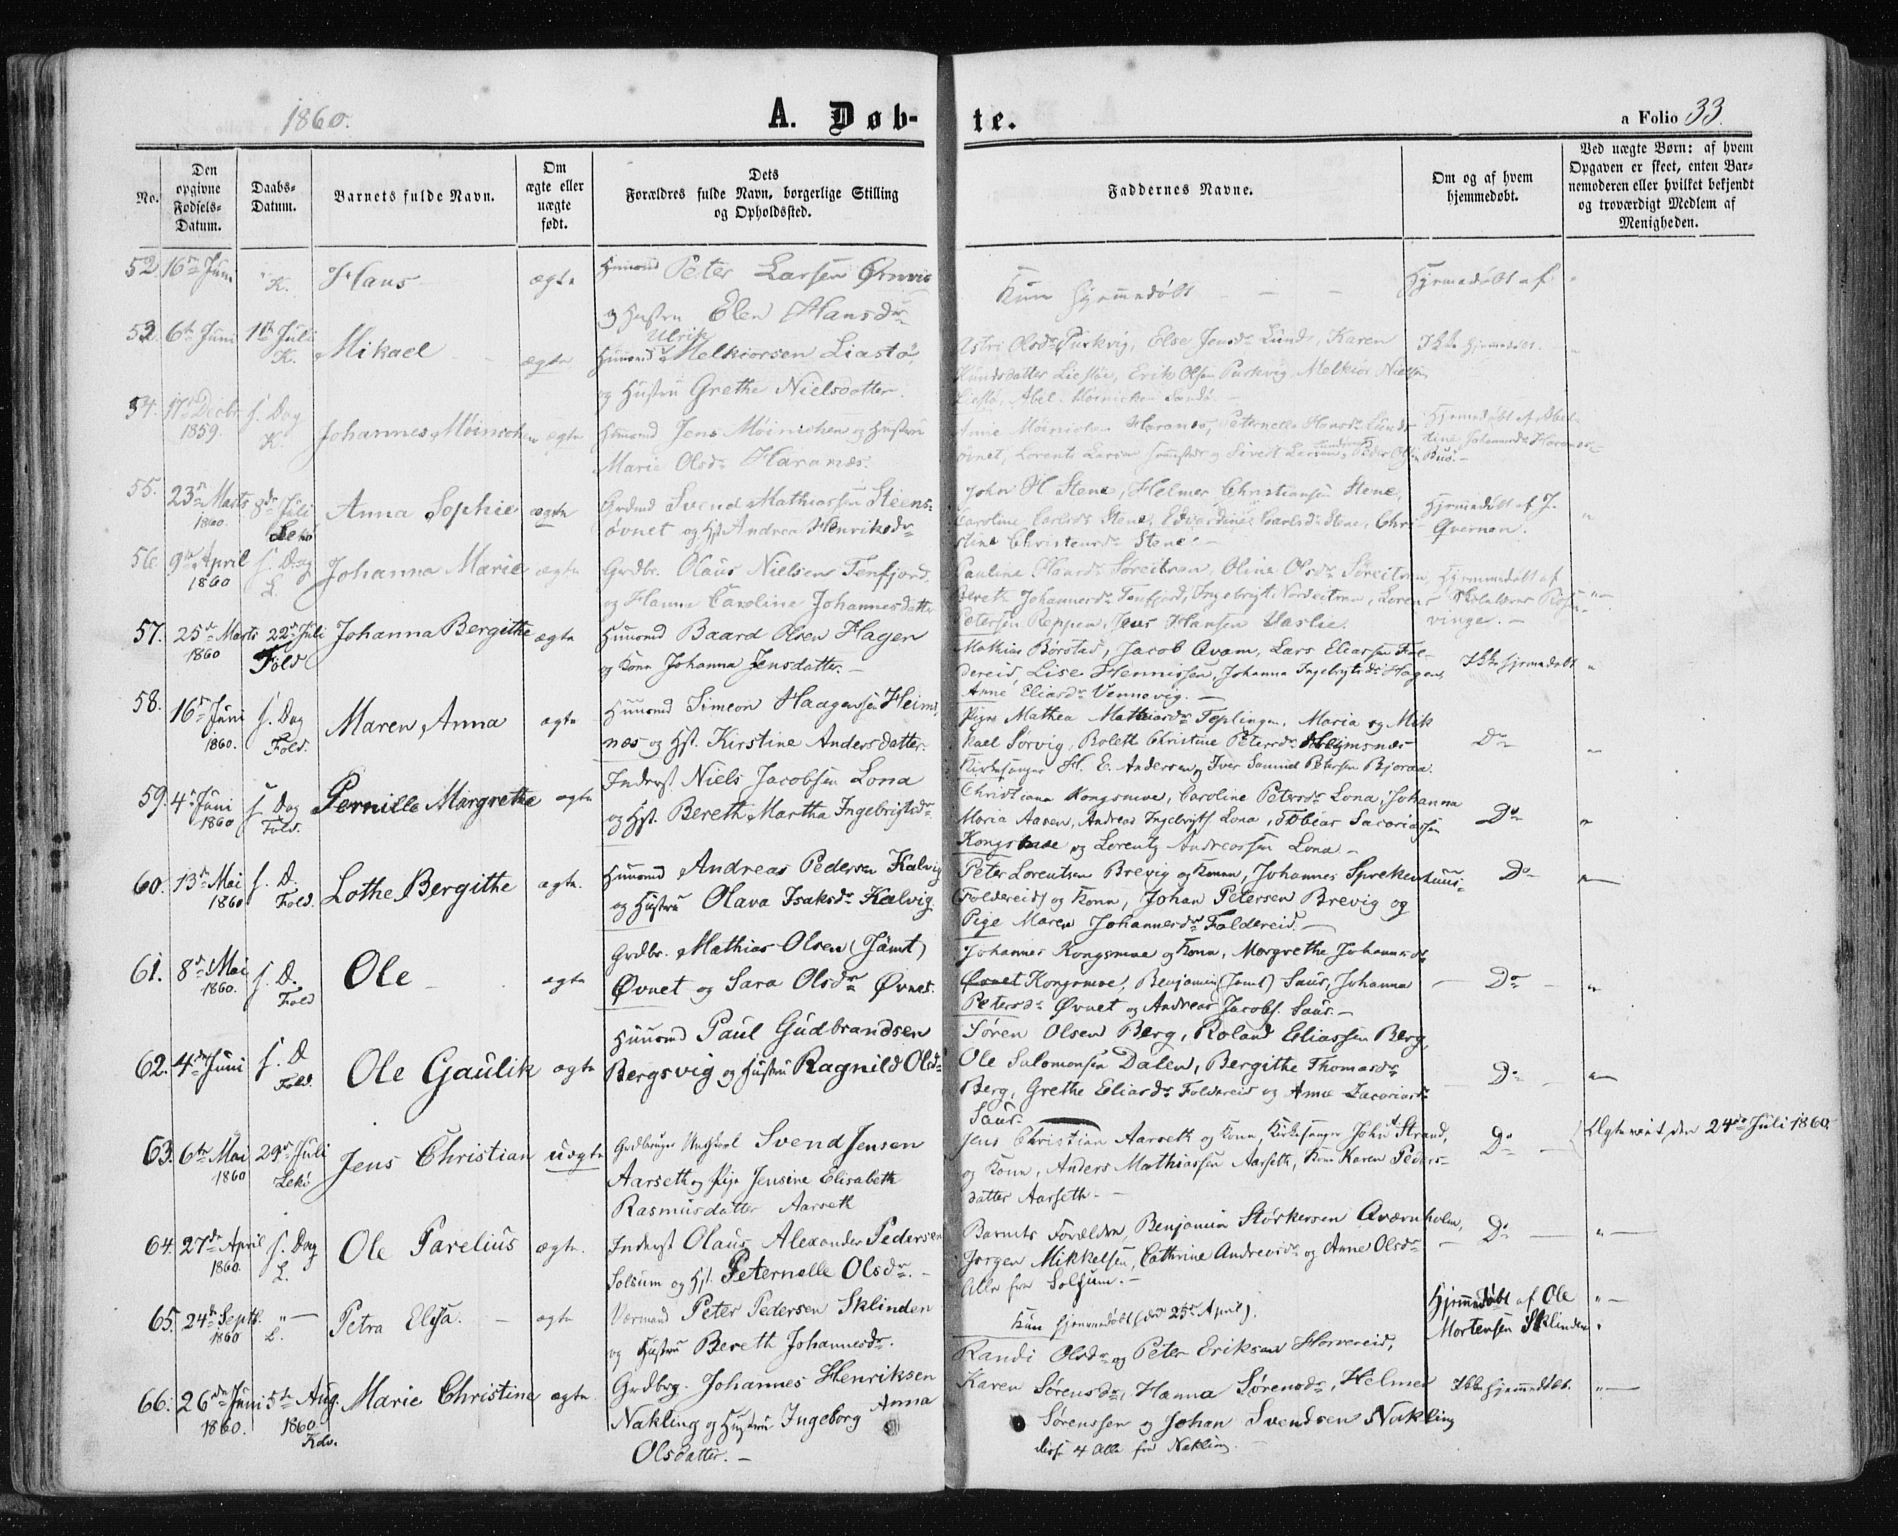 1860.
A. Døb-
te.
a Folio 33.
No.
Den opgivne Fødsels-Datum.
Daabs-Datum.
Barnets fulde Navn.
Om ægte eller uægte født.
Dets Forældres fulde Navn, borgerlige Stilling og Opholdssted.
Faddernes Navne.
Om og af hvem hjemmedøbt.
Ved uægte Børn: af hvem Opgaven er skeet, enten Barnemoderen eller hvilket bekjendt og troværdigt Medlem af Menigheden.
52. 16de Juni " K. Hans ægte Huusmd Peter Larsen Ørnvig
og Hustru Elen Hansdr
Kun hjemmedøbt - - -
Hjemmedøbt af
53. 6te Juni 11te Juli K. Mikael ægte Huusmd Ulrik Melkiorsen Liastø
og Hustru Grethe Nielsdatter.
Astri Olsdr Purkvig, Else Jensdr Lund, Karen
Liestøe, Erik Olsen Purkvig, Melkior Nielsen
Ikke hjemmedøbt.
54. 17de Decbr 1859. s. Dag K. Johannes Møinichen ægte Huusmd Jens Møinichen og Hustru
Marie Olsdr Haranæs.
Anne Møinichen Haranæs, Peternelle Hansdr
Lorents Larsen og Sivert Larsen, Peder Olsen
Hjemmedøbt af
55. 23de Marts 1860. 8de Juli Lekø Anna Sophie ægte Grdmd Svend Mathiassen Steens-
øvnet og Hst Andrea Henriksdr
John H Stene, Helmer Christiansen Stene,
Caroline Carlsdr Stene, Edvardine Carlsdr Stene, Chri-
stine Christensdr Stene. -
Hjemmedøbt af J.
Qvernen.
56. 9de April 1860 s. Dag L. Johanna Marie ægte Grdbr. Olaus Nielsen Tenfjord
og Hanna Caroline Johannesdatter
Pauline Søreitran, Oline Olsdr Søreitran,
Bereth Johannesdr Tenfjord, Ingebrigt Nordeitran, Lorens
Petersen Reppen, Jens Hansen Haslie.
Hjemmedøbt af
Skolelærer Rosen-
vinge. -
57. 25de Marts 1860 22de Juli Fold. Johanna Bergithe ægte Huusmd Baard Olsen Hagen
og Kone Johanna Jensdatter. -
Mathias Børstad, Jacob Qvam, Lars Eliassen Fol-
dereid, Lise Hennissen, Johanna Ingebrigtsdr Hagen,
Anne Eliasdr Vennevig. -
Ikke hjemmedøbt "
58. 16de Juni 1860. s. Dag Fold. Maren Anna ægte Huusmd Simeon Haagensen Heims-
næs og Hst. Kirstine Andersdatter.
Pige Mathea Mathiasdr Teplingen, Maria og Mik
kael Sørvig, Boleth Christine Petersdr Heimsnæs
Kirkesanger H. E. Andersen og Iver Samuel Petersen Bjøraa.
Do "
59. 4de Juni 1860 s. Dag Fold. Pernille Margrethe ægte Inderst Niels Jacobsen Lona
og Hst. Bereth Martha Ingebrigtsdr
Christiana Kongsmoe, Caroline Petersdr Lona, Johanna
Maria Aasen, Andreas Ingebrigts. Lona, Tobias Sacariassen
Kongsmoe og Lorentz Andreassen Lona -
Do "
60. 13de Mai 1860 s. D. Fold. Lothe Bergithe ægte. Huusmd Andreas Pedersen Kalvig
og Hustru Olava Isaksdr Kalvig
Peter Lorentsen Brevig og Kone, Johannes Sprekenhuus-
Foldereid og Kone, Johan Petersen Brevig og
Pige Maren Johannesdr Foldereid. -
Do "
61. 8de Mai 1860. s. D. Fold Ole ægte Grdbr. Mathias Olsen (Jämt)
Øvnet og Sara Olsdr Øvnet.
Johannes Kongsmoe og Kone, Morgrethe Johannsdr
Øvnet Kongsmoe, Benjamin (Jämt) Saus, Johanna
Petersdr Øvnet og Andreas Jacobs. Saus. -
Do "
62. 4de Juni s. D Fold. Ole Gaulik ægte Huusmd Paul Gudbrandsen
Bergsvig og Hustru Ragnild Olsdr
Søren Olsen Berg, Roland Eliassen Berg,
Ole Salomonsen Dalen, Bergithe Thomasdr
Berg, Grethe Eliasdr Foldereid og Anne Zacariasdr
Saus.
Do "
63. 6te Mai 1860 29de Juli Lekø Jens Christian uægte Grdbruger Ungkarl Svend Jensen
Aarseth og Pige Jensine Elisabeth
Rasmusdatter Aarseth
Jens Christian Aarseth og Kone, Kirkesanger John Strand,
og Kone, Anders Mathiassen Aarseth, Kone Karen Peders-
datter Aarseth. -
Do
Ægteviet den 24de Juli 1860.
64. 27de April 1860. s. Dag L. Ole Parelius ægte. Inderst Olaus Alexander Pedersen
Solsum og Hst. Peternelle Olsdr. -
Barnets Forældre, Benjamin Størkersen Qværnholm,
Jørgen Mikkelsen, Cathrine Andreasdr og Anne Olsdr
Alle fra Solsum. -
Do "
65. 24de Septb. 1860 " L. Petra Elisa. ægte Værmand Peter Pedersen Sklinden
og Hustru Bereth Johannesdr.
Kun hjemmedøbt (den 25de April).
Hjemmedøbt af Ole
Mortensen Sklinden.
66. 26de Juni 1860. 5te Aug. 1860 Kolv. Marie Christine ægte. Grdbrg. Johannes Henriksen
Nakling og Hustru Ingeborg Anna
Olsdatter. -
Randi Olsdr og Peter Eriksen Horvereid,
Karen Sørensdr, Hanna Sørensdr, Helmer
Sørenssen og Johan Svendsen Nakling
disse 4 Alle fra Nakling. -
Ikke hjemmedøbt. "